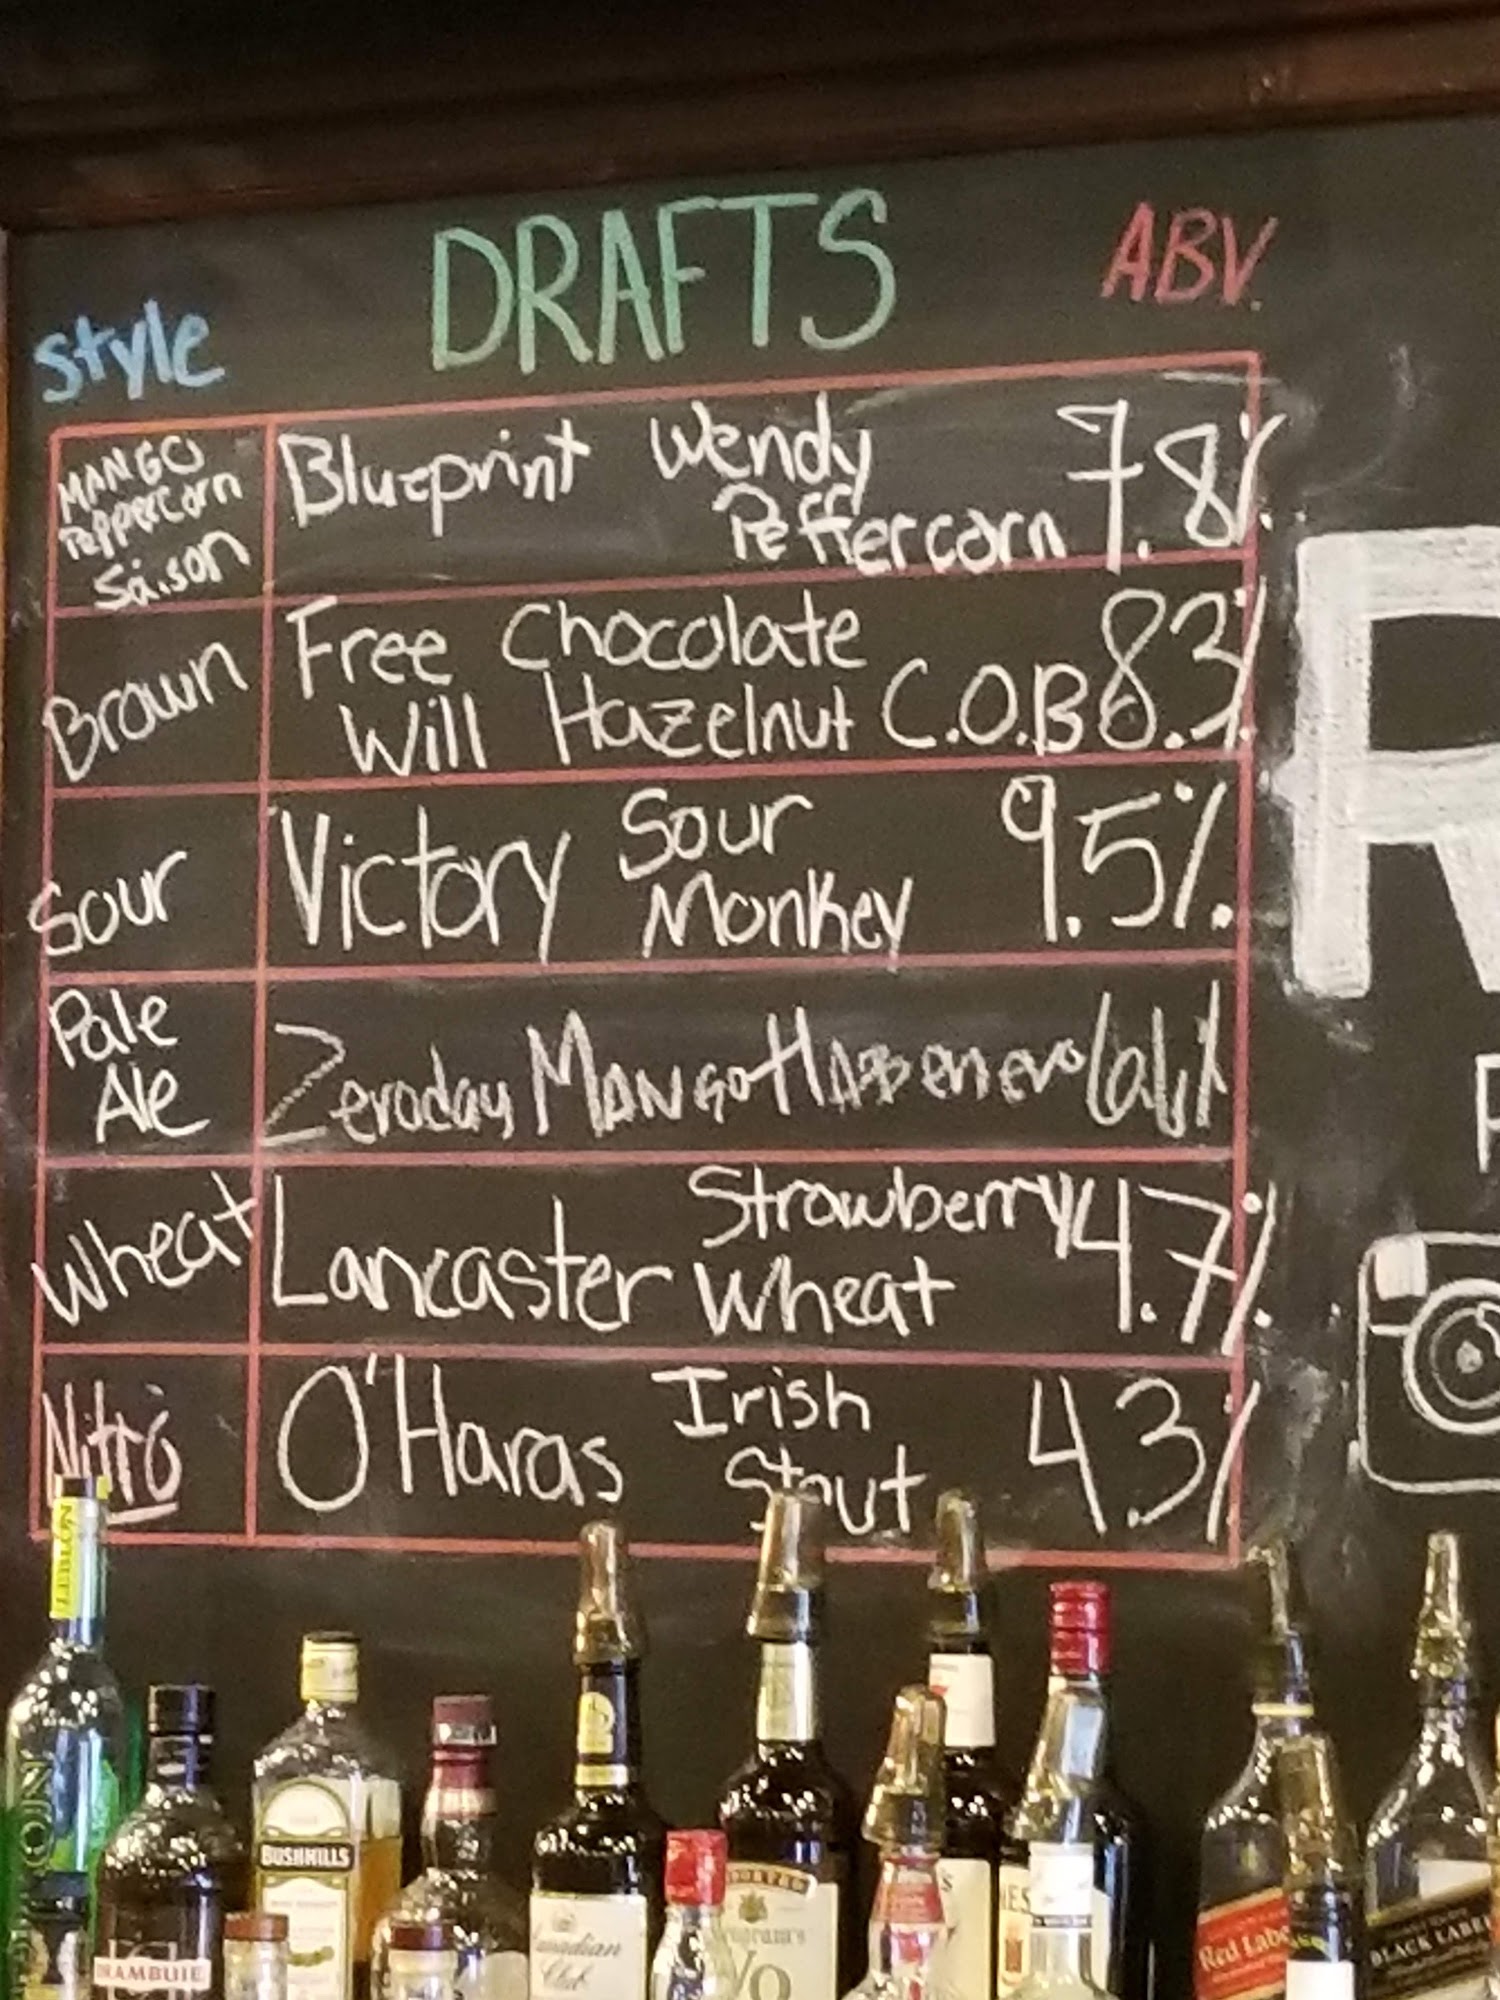 DRAFTS ABV
Style
MANGO
Peppercorn
Saison
Blueprint Wendy
Peffercorn
7.8%
Brown
Free Chocolate
Will Hazelnut C.O.B
8.3%
Sour
Victory Sour
Monkey
9.5%
Pale
Ale
Zeroday MANGO HABBENERO
Wheat
Lancaster Strawberry
Wheat
4.7%
Nitro
O'Haras Irish
Stout
4.3%
R
P
NOLET
BUSHMILLS
DRAMBUIE
Canadian
Club
Red Label
BLACK LABEL